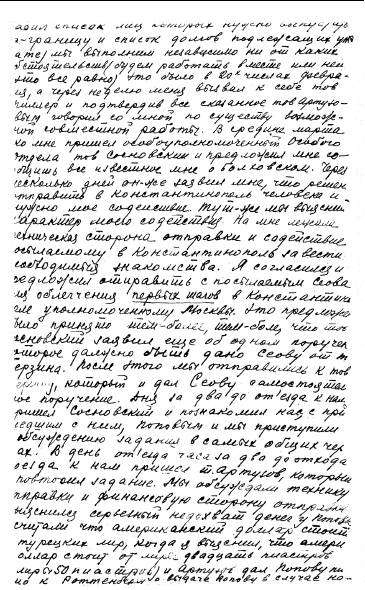 список лиц которых нужно выпустить
границу и список долгов подлежащих упл
ате) мы выполним независимо ни от каких
обстоятельств (будем работать вместе или нет
это все равно) это было в 20х числах февра-
ля, а через неделю меня вызвал к себе тов
и подтвердив все сказанное тов Артузо-
вым говорил со мной по существу возмож-
ной совместной работы. В середине марта
ко мне пришел особоуполномоченный Особого
отдела тов Сосновский и предложил мне со-
общить все известное мне о Волковском. Через
несколько дней он-же заявил мне, что решен
отправить в Константинополь человека и
нужно мое содействие тут-же мы выяснили
характер моего содействия На мне лежала
техническая сторона отправки и содействие
посылаемому в Константинополь завести
необходимые знакомства. Я согласился и
предложил отправить с посылаемым Сеова
для облегчения первых шагов в Константино
поле уполномоченному Москвы. Это предложен
было принято тем-более, что тов
Сосновский заявил еще об одном поручен
которое должно быть дано Сеову от т
ерзина. После этого мы отправились к тов
который и дал Сеову самостоятель
ное поручение. Дня за два до отезда к нам
пришел Сосновский и познакомил нас с при
шедшим с ним, Поповым и мы приступили
обсуждению задания в самых общих чер
тах. В день отезда часа за два до отхода
поезда к нам пришел т. Артузов, который
повторил задание. Мы обсуждали технику
отправки и финансовую сторону отправки
выяснился серьезный недохват денег у Попова
считали что американский доллар стоит
турецких лир, когда я выяснил, что амери
доллар стоит двадцать пиастров
лиры 50 пиастров) и Артузов дал Попову пи
о выдаче Попову в случае на-